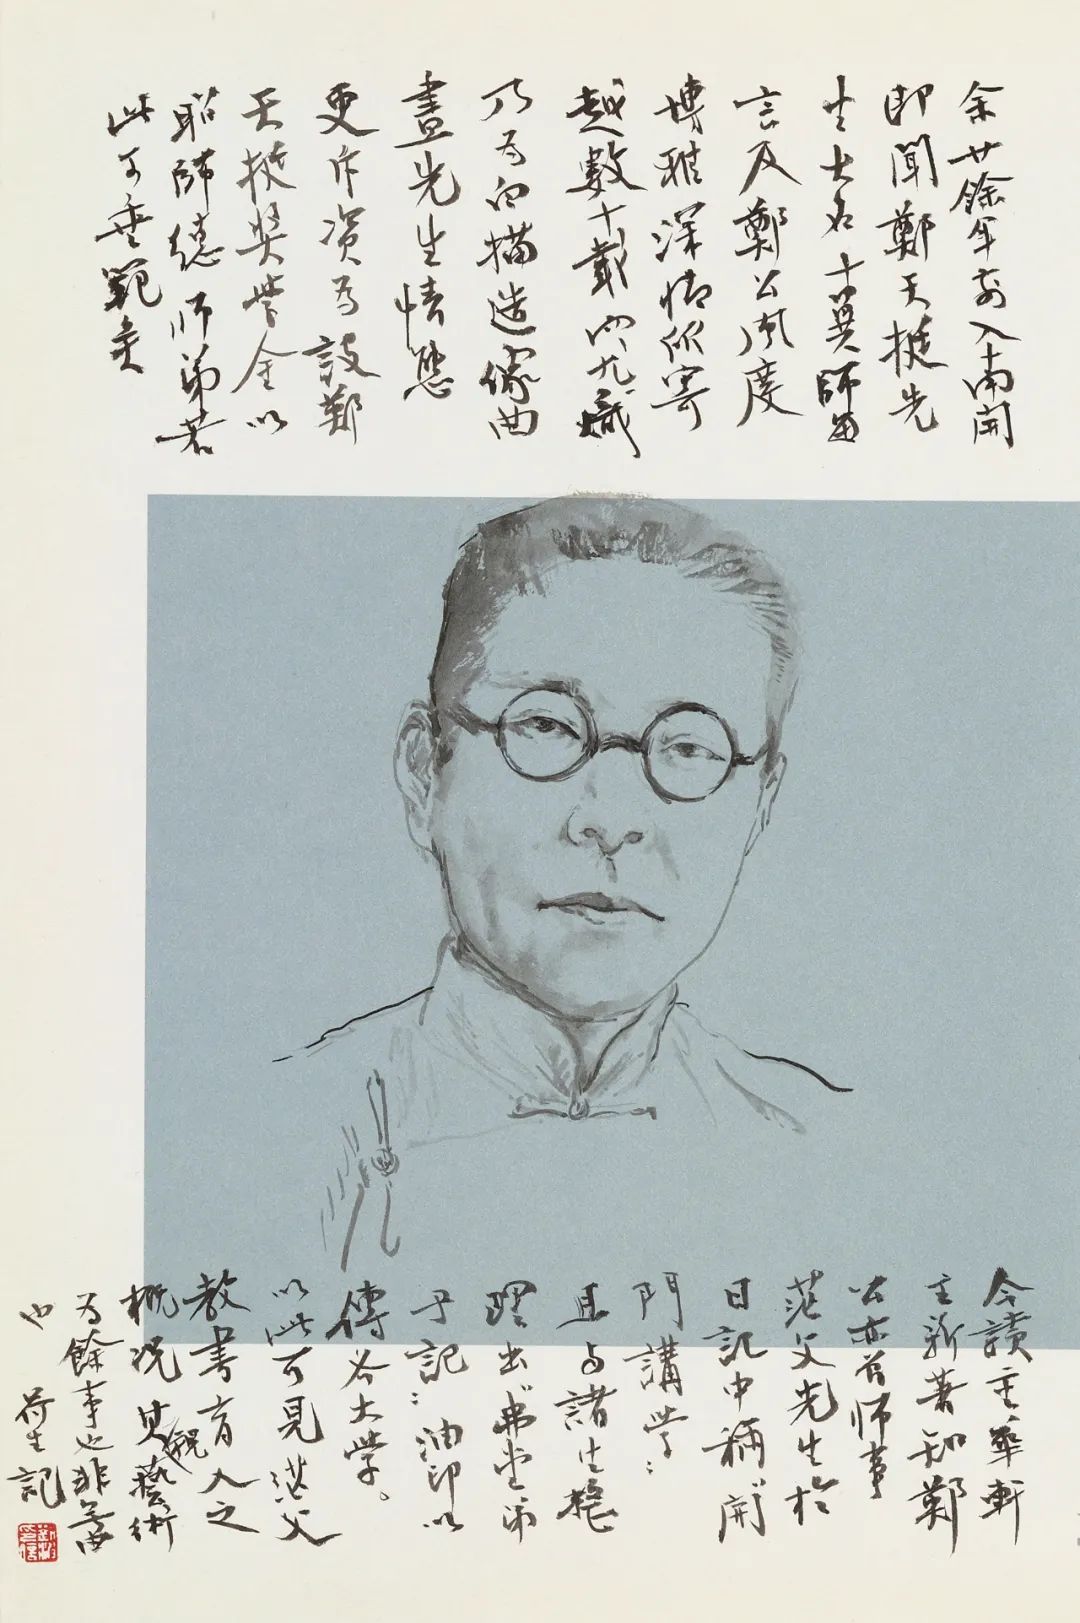 余廿餘年前入南開
即聞鄭天挺先
生大名十翼師每
言及鄭公風度
博雅深情所寄
越數十載
乃為白描造像曲
盡先生情態
更斥资為設鄭
天挺獎學金以
昭師德师弟若
此可垂範矣
今讀主華軒
主新著知鄭
公亦曾师事
茫父先生於
日記中稱開
門講學
且与諸生整
理出弗堂弟
子記油印以
傳各大学。
以此可見茫父
教書育人之
概况其視藝術
為餘事也非無由
也
荷生記